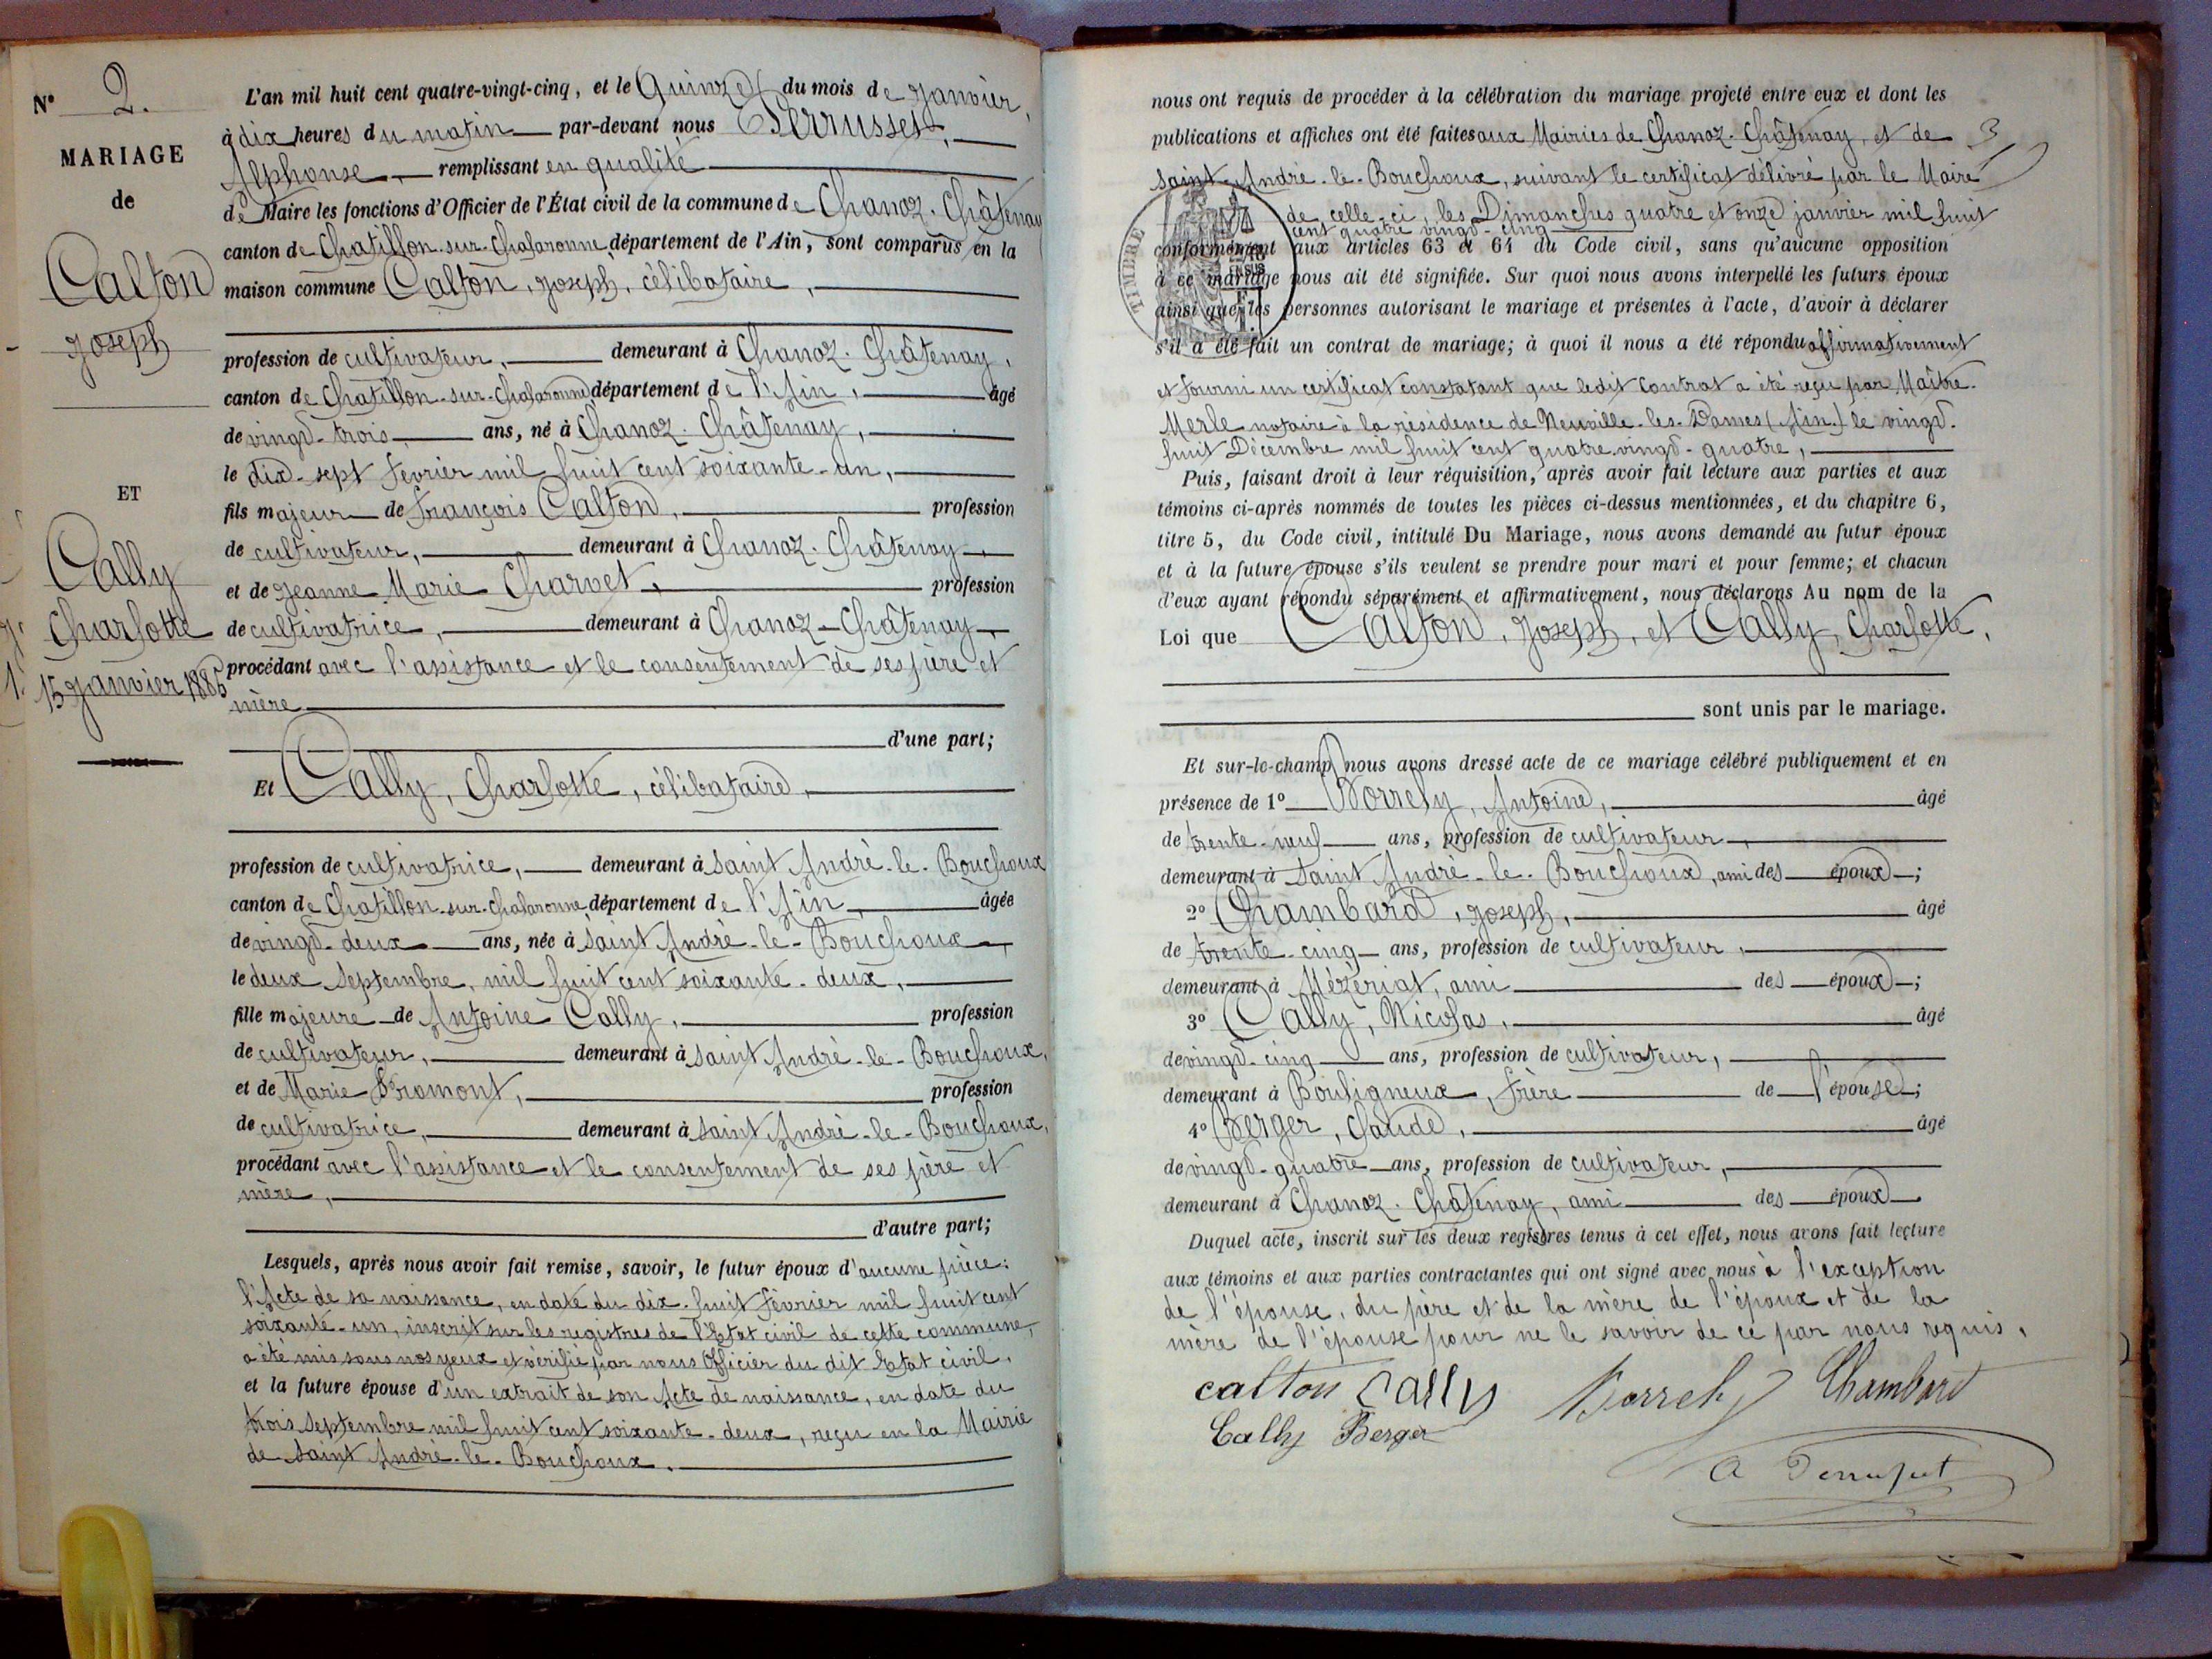 N° 2.
MARIAGE
de
Calton
Joseph
ET
Cally
Charlotte
15 Janvier 1885
L'an mil huit cent quatre-vingt-cinq, et le Quinze du mois de Janvier,
à dix heures du matin par-devant nous Perrusset,
Alphonse, remplissant en qualité
de Maire les fonctions d'Officier de l'État civil de la commune de Chanoz-Châtenay
canton de Chatillon-sur-Chalaronne, département de l'Ain, sont comparus en la
maison commune Calton, Joseph, célibataire,
profession de cultivateur, demeurant à Chanoz-Châtenay,
canton de Chatillon-sur-Chalaronne, département de l'Ain, âgé
de vingt-trois ans, né à Chanoz-Châtenay,
le dix-sept février mil huit cent soixante-un,
fils majeur de François Calton, profession
de cultivateur, demeurant à Chanoz-Châtenay,
et de Jeanne Marie Charvet, profession
de cultivatrice, demeurant à Chanoz-Châtenay,
procédant avec l'assistance et le consentement de ses père et
mère
d'une part;
Et Cally, Charlotte, célibataire,
profession de cultivatrice, demeurant à Saint André-le-Bouchoux
canton de Chatillon-sur-Chalaronne, département de l'Ain, âgée
de vingt-deux ans, née à Saint André-le-Bouchoux,
le deux Septembre, mil huit cent soixante-deux,
fille majeure de Antoine Cally, profession
de cultivateur, demeurant à Saint André-le-Bouchoux,
et de Marie Fromont, profession
de cultivatrice, demeurant à Saint André-le-Bouchoux,
procédant avec l'assistance et le consentement de ses père et
mère,
d'autre part;
Lesquels, après nous avoir fait remise, savoir, le futur époux d'aucune pièce:
l'Acte de sa naissance, en date du dix-huit février mil huit cent
soixante-un, inscrit sur les registres de l'Etat civil de cette commune,
a été mis sous nos yeux et vérifié par nous Officier du dit Etat civil.
et la future épouse d'un extrait de son Acte de naissance, en date du
trois Septembre mil huit cent soixante-deux, reçu en la Mairie
de Saint André-le-Bouchoux.
3
nous ont requis de procéder à la célébration du mariage projeté entre eux et dont les
publications et affiches ont été faites aux Mairies de Chanoz-Châtenay, et de
Saint-André-le-Bouchoux, suivant le certificat délivré par le Maire
de celle-ci, les Dimanches quatre et onze janvier mil huit
cent quatre vingt-cinq
conformément aux articles 63 et 64 du Code civil, sans qu'aucune opposition
à ce mariage nous ait été signifiée. Sur quoi nous avons interpellé les futurs époux
TIMBRE
ainsi que les personnes autorisant le mariage et présentes à l'acte, d'avoir à déclarer
s'il a été fait un contrat de mariage; à quoi il nous a été répondu affirmativement
et fourni un certificat constatant que ledit Contrat a été reçu par Maître
Merle notaire à la résidence de Neuville-les-Dames (Ain) le vingt-
huit Décembre mil huit cent quatre-vingt-quatre,
Puis, faisant droit à leur réquisition, après avoir fait lecture aux parties et aux
témoins ci-après nommés de toutes les pièces ci-dessus mentionnées, et du chapitre 6,
titre 5, du Code civil, intitulé Du Mariage, nous avons demandé au futur époux
et à la future épouse s'ils veulent se prendre pour mari et pour femme; et chacun
d'eux ayant répondu séparément et affirmativement, nous déclarons Au nom de la
Loi que Calton, Joseph, et Cally, Charlotte,
sont unis par le mariage.
Et sur-le-champ nous avons dressé acte de ce mariage célébré publiquement et en
présence de 1° Borrely, Antoine, âgé
de trente-neuf ans, profession de cultivateur,
demeurant à Saint André-le-Bouchoux, ami des époux;
2° Chambard, Joseph, âgé
de trente-cinq ans, profession de cultivateur,
demeurant à Mézériat, ami des époux;
3° Cally, Nicolas, âgé
de vingt-cinq ans, profession de cultivateur,
demeurant à Bouligneux, frère de l'épouse;
4° Berger, Claude, âgé
de vingt-quatre ans, profession de cultivateur,
demeurant à Chanoz-Châtenay, ami des époux
Duquel acte, inscrit sur les deux registres tenus à cet effet, nous avons fait lecture
aux témoins et aux parties contractantes qui ont signé avec nous à l'exception
de l'épouse, du père et de la mère de l'époux et de la
mère de l'épouse pour ne le savoir de ce par nous requis.
calton Cally Borrely Chambard
Cally Berger
A Perrusset